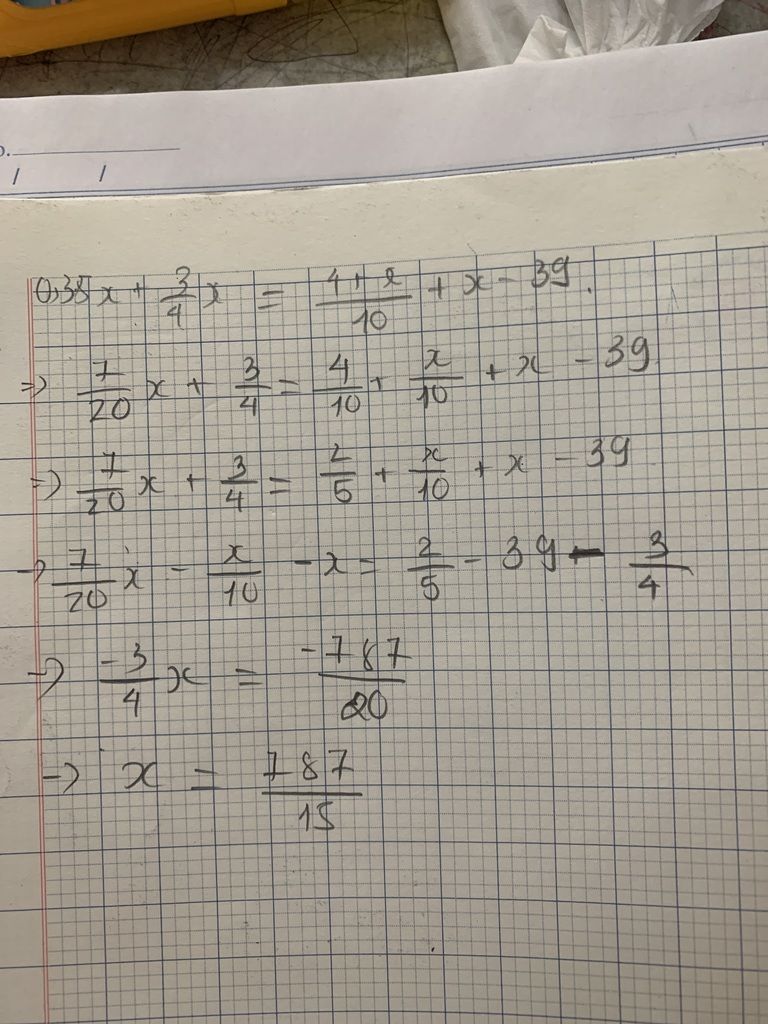 0,35x + 3/4 x = (4+x)/10 + x - 39.
=> 7/20 x + 3/4 = 4/10 + x/10 + x - 39
=> 7/20 x + 3/4 = 2/5 + x/10 + x - 39
-> 7/20 x - x/10 - x = 2/5 - 39 - 3/4
-> -3/4 x = -787/20
-> x = 787/15